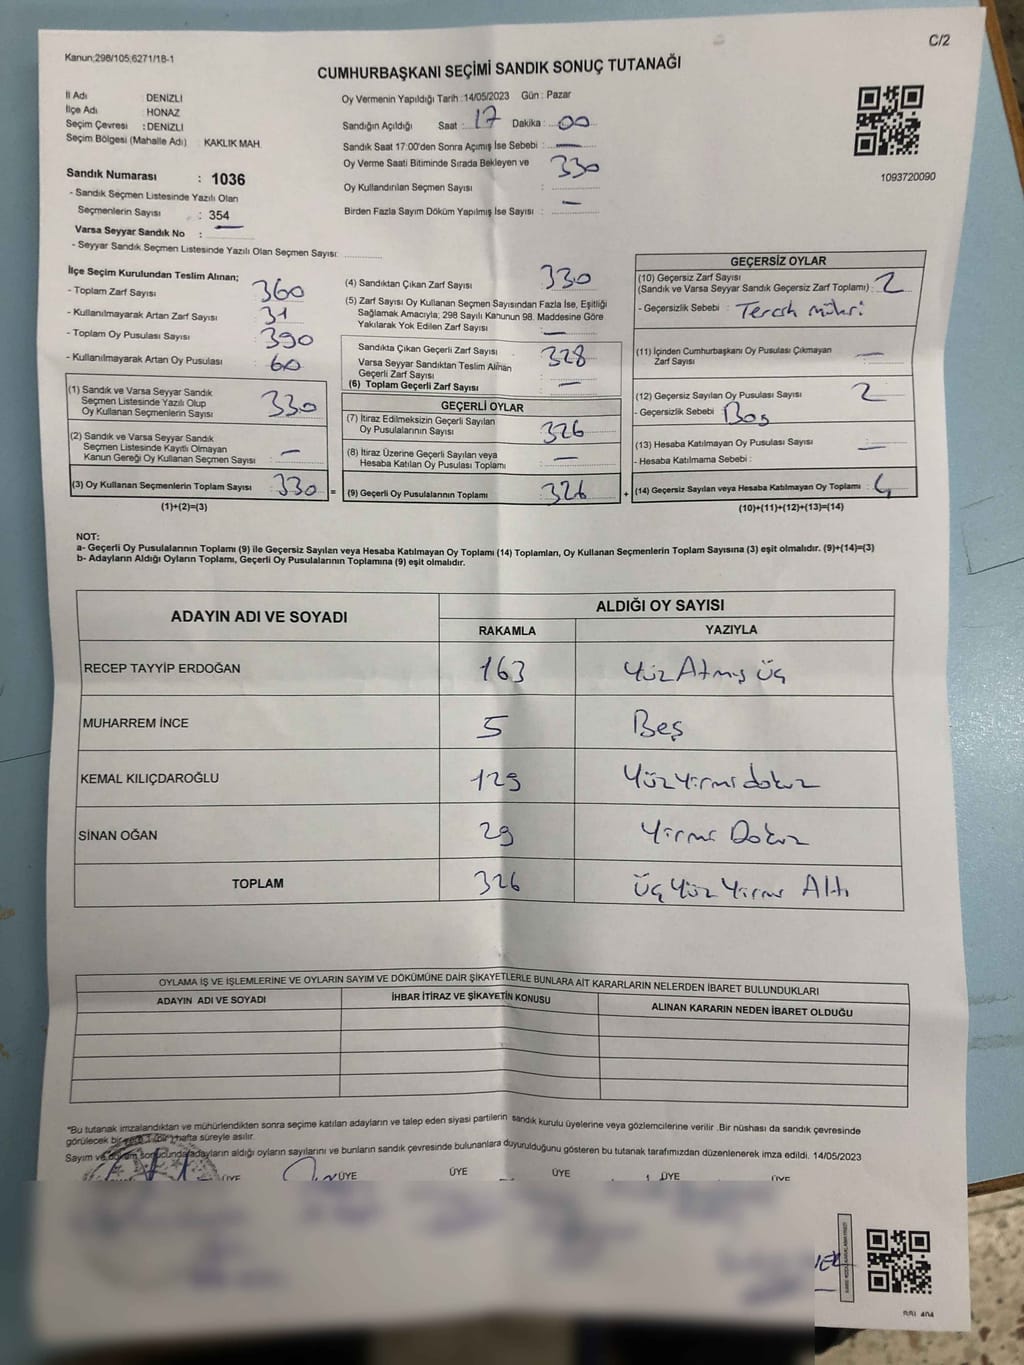 Kanun;298/105;6271/18-1
C/2
CUMHURBAŞKANI SEÇİMİ SANDIK SONUÇ TUTANAĞI
İl Adı : DENİZLİ
İlçe Adı : HONAZ
Seçim Çevresi : DENİZLİ
Seçim Bölgesi (Mahalle Adı) : KAKLIK MAH.
Sandık Numarası : 1036
- Sandık Seçmen Listesinde Yazılı Olan
Seçmenlerin Sayısı : 354
Varsa Seyyar Sandık No : —
- Seyyar Sandık Seçmen Listesinde Yazılı Olan Seçmen Sayısı:
Oy Vermenin Yapıldığı Tarih :14/05/2023 Gün : Pazar
Sandığın Açıldığı Saat : 17 Dakika : 00
Sandık Saat 17:00'den Sonra Açımış İse Sebebi : —
Oy Verme Saati Bitiminde Sırada Bekleyen ve
Oy Kullandırılan Seçmen Sayısı : 330
Birden Fazla Sayım Döküm Yapılmış İse Sayısı : —
1093720090
İlçe Seçim Kurulundan Teslim Alınan;
- Toplam Zarf Sayısı : 360
- Kullanılmayarak Artan Zarf Sayısı : 31
- Toplam Oy Pusulası Sayısı : 390
- Kullanılmayarak Artan Oy Pusulası : 60
(1) Sandık ve Varsa Seyyar Sandık
Seçmen Listesinde Yazılı Olup
Oy Kullanan Seçmenlerin Sayısı : 330
(2) Sandık ve Varsa Seyyar Sandık
Seçmen Listesinde Kayıtlı Olmayan
Kanun Gereği Oy Kullanan Seçmen Sayısı : —
(3) Oy Kullanan Seçmenlerin Toplam Sayısı : 330 =
(1)+(2)=(3)
(4) Sandıktan Çıkan Zarf Sayısı : 330
(5) Zarf Sayısı Oy Kullanan Seçmen Sayısından Fazla İse, Eşitliği
Sağlamak Amacıyla; 298 Sayılı Kanunun 98. Maddesine Göre
Yakılarak Yok Edilen Zarf Sayısı : —
Sandıkta Çıkan Geçerli Zarf Sayısı : 328
Varsa Seyyar Sandıktan Teslim Alınan
Geçerli Zarf Sayısı : —
(6) Toplam Geçerli Zarf Sayısı :
GEÇERLİ OYLAR
(7) İtiraz Edilmeksizin Geçerli Sayılan
Oy Pusulalarının Sayısı : 326
(8) İtiraz Üzerine Geçerli Sayılan veya
Hesaba Katılan Oy Pusulası Toplamı : —
(9) Geçerli Oy Pusulalarının Toplamı : 326 +
GEÇERSİZ OYLAR
(10) Geçersiz Zarf Sayısı
(Sandık ve Varsa Seyyar Sandık Geçersiz Zarf Toplamı) : 2
- Geçersizlik Sebebi : Tercih mühri
(11) İçinden Cumhurbaşkanı Oy Pusulası Çıkmayan
Zarf Sayısı : —
(12) Geçersiz Sayılan Oy Pusulası Sayısı : 2
- Geçersizlik Sebebi : Boş
(13) Hesaba Katılmayan Oy Pusulası Sayısı : —
- Hesaba Katılmama Sebebi :
(14) Geçersiz Sayılan veya Hesaba Katılmayan Oy Toplamı : 4
(10)+(11)+(12)+(13)=(14)
NOT:
a- Geçerli Oy Pusulalarının Toplamı (9) ile Geçersiz Sayılan veya Hesaba Katılmayan Oy Toplamı (14) Toplamları, Oy Kullanan Seçmenlerin Toplam Sayısına (3) eşit olmalıdır. (9)+(14)=(3)
b- Adayların Aldığı Oyların Toplamı, Geçerli Oy Pusulalarının Toplamına (9) eşit olmalıdır.
ADAYIN ADI VE SOYADI ALDIĞI OY SAYISI
RAKAMLA YAZIYLA
RECEP TAYYİP ERDOĞAN 163 Yüz Atmış üç
MUHARREM İNCE 5 Beş
KEMAL KILIÇDAROĞLU 129 Yüz Yirmi dokuz
SİNAN OĞAN 29 Yirmi Dokuz
TOPLAM 326 Üç Yüz Yirmi Altı
OYLAMA İŞ VE İŞLEMLERİNE VE OYLARIN SAYIM VE DÖKÜMÜNE DAİR ŞİKAYETLERLE BUNLARA AİT KARARLARIN NELERDEN İBARET BULUNDUKLARI
ADAYIN ADI VE SOYADI İHBAR İTİRAZ VE ŞİKAYETİN KONUSU ALINAN KARARIN NEDEN İBARET OLDUĞU
"Bu tutanak imzalandıktan ve mühürlendikten sonra seçime katılan adayların ve talep eden siyasi partilerin sandık kurulu üyelerine veya gözlemcilerine verilir .Bir nüshası da sandık çevresinde
görülecek bir yere 1 (bir) hafta süreyle asılır.
Sayım ve döküm sonucunda adayların aldığı oyların sayılarını ve bunların sandık çevresinde bulunanlara duyurulduğunu gösteren bu tutanak tarafımızdan düzenlenerek imza edildi. 14/05/2023
ÜYE ÜYE ÜYE ÜYE ÜYE ÜYE